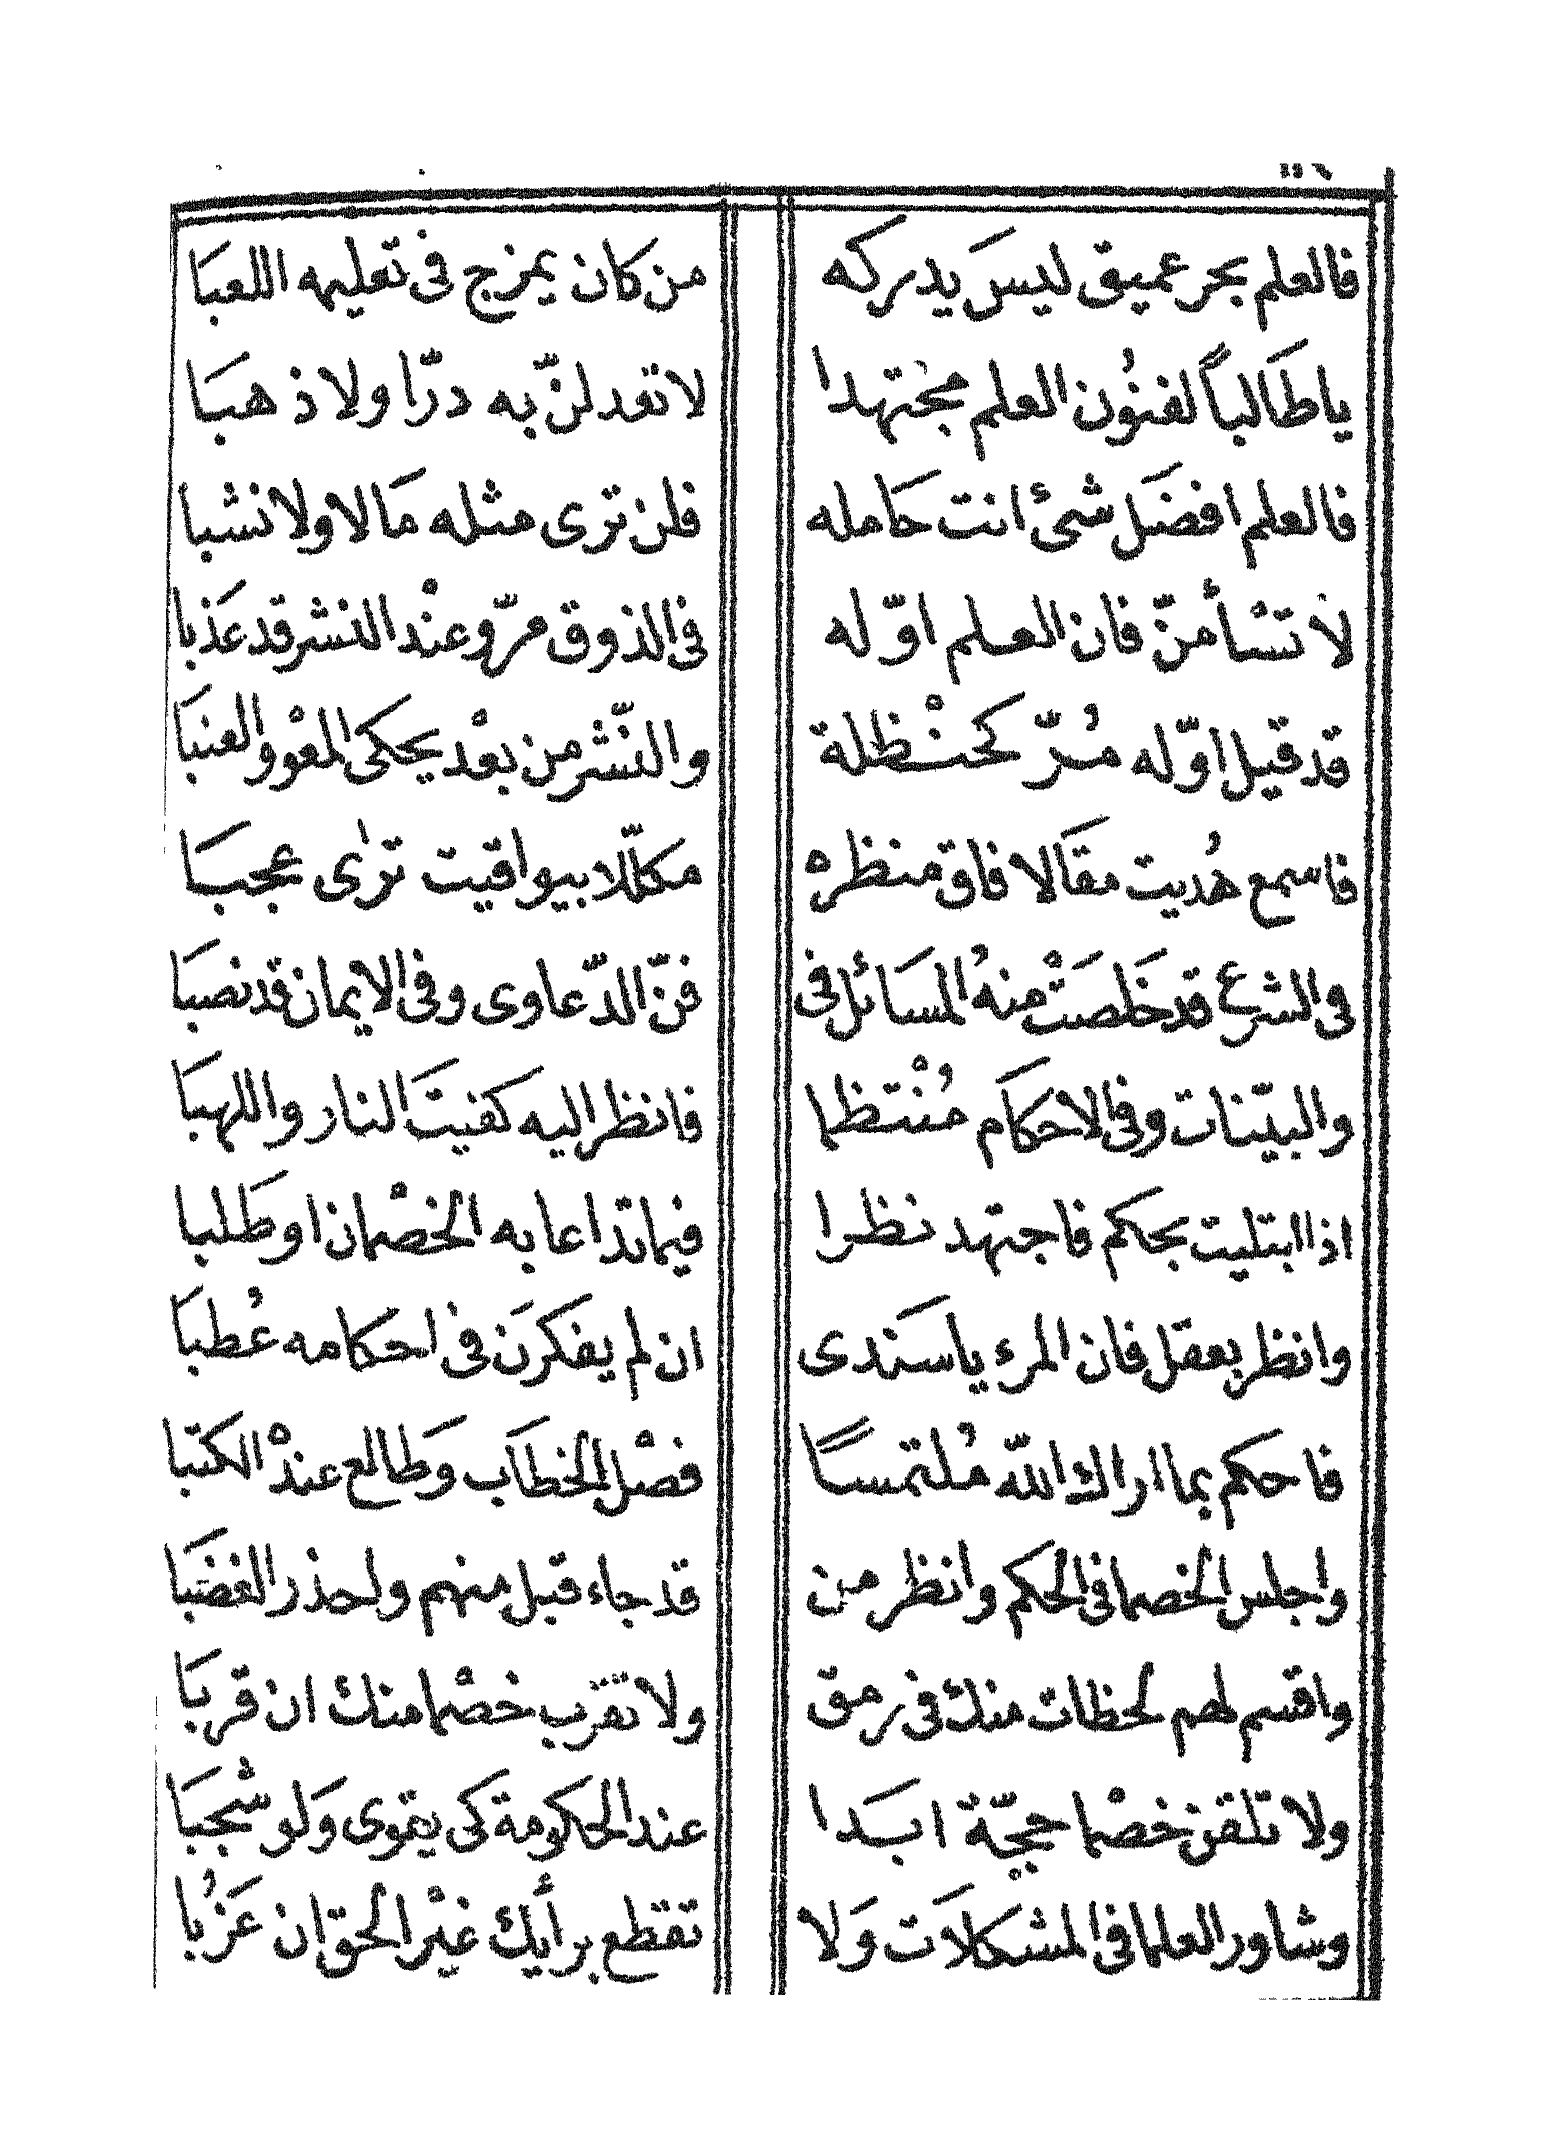 فالعلم بحر عميق ليسَ يدركه من كان يمزج فى تعليمه اللعبَا
يا طَالباً لفنُون العلم مجتهدا لا تعدلنّ به درّا ولا ذهبَا
فالعلم افضَل شئ انت حَامله فلن ترى مثله مَالا ولا نشبا
لا تسْأمنّ فان العلم اوّله فى الذوق مرّ وعنْد النشر قد عَذبا
قد قيل اوّله مُرّ كحنْظلة والنّشر من بعْد يحكى المعْو والعنبَا
فاسمع هُديت مقَالا فاق منظره مكلّلا بيواقيت ترٰى عجبَا
فى الشرع قد خَلصَتْ منهُ المسَائل فى فنّ الدّعاوى وفى الايمان قد نصبَا
والبيّنات وفى الاحكَام مُنْتظما فانظر اليه كفيتَ النار واللهبَا
اذا ابتليت بحكم فاجتهد نظرا فيما تداعا به الخصْمان او طَلبا
وانظر بعقل فان المرء يا سندى ان لم يفكرَن فى احكامه عُطبَا
فاحكم بما اراك اللّه مُلتمسًا فصْل الخطاَب وَطالع عندْ الكتبَا
واجلس الخصما فى الحكم وانظر من قد جاء قبل منهم ولحذر الغضبَا
واقسم لهم لحظات منك فى رمق ولا تقرّب خصْما منك ان قربَا
ولا تلقن خصْما حجّة ابَدا عند الحكومة كى يقوى وَلو شْجبَا
وشاور العلما فى المشكلاَت وَلا تقطع برأيك غيْر الحق إن عَزُبا